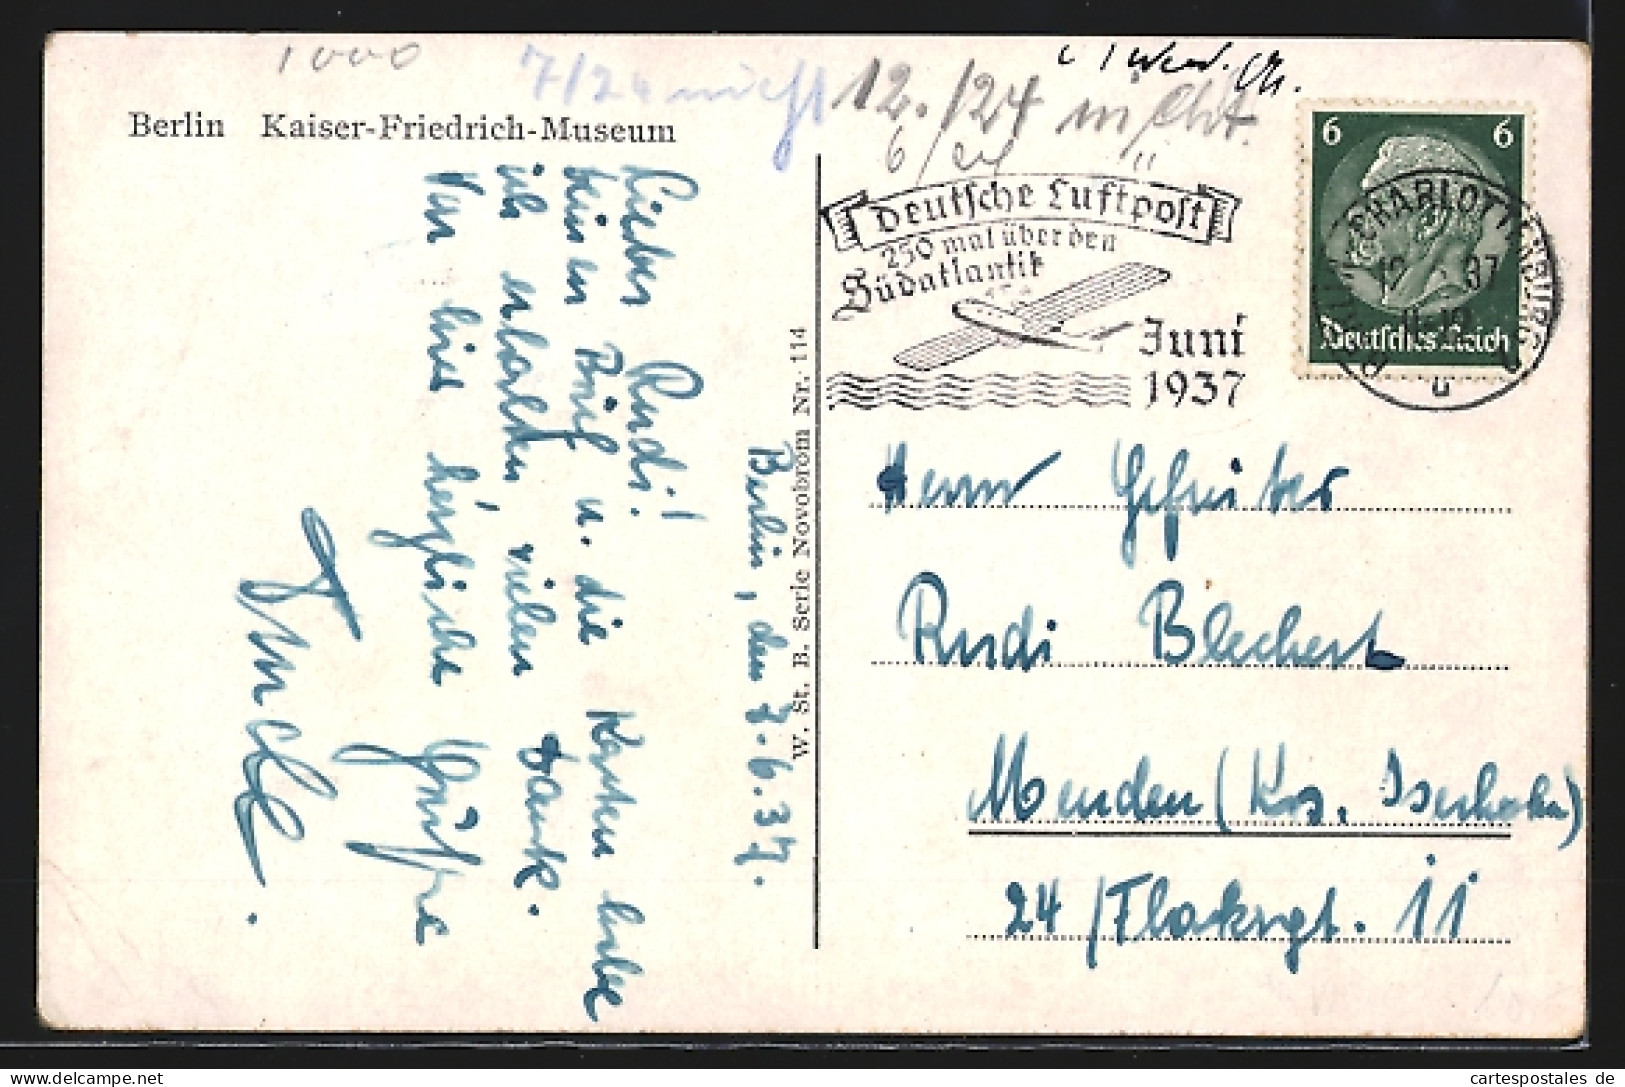 1000
7/24 nicht 12./24 nicht.
6/24 "
Berlin Kaiser-Friedrich-Museum
Deutsche Luftpost
250 mal über den
Südatlantik
Juni
1937
6 6
Deutsches Reich
BERLIN-CHARLOTTENBURG
12 37
u
W. St. B. Serie Novobrom Nr. 114
Berlin, den 7.6.37.
Lieber Rudi!
Deinen Brief u. die Karten habe
ich erhalten, vielen Dank.
Von hier herzliche Grüße
Herrn Gefreiter
Rudi Blechert
Menden (Krs. Iserlohn)
24/Flakrgt. 11
cartespostales de